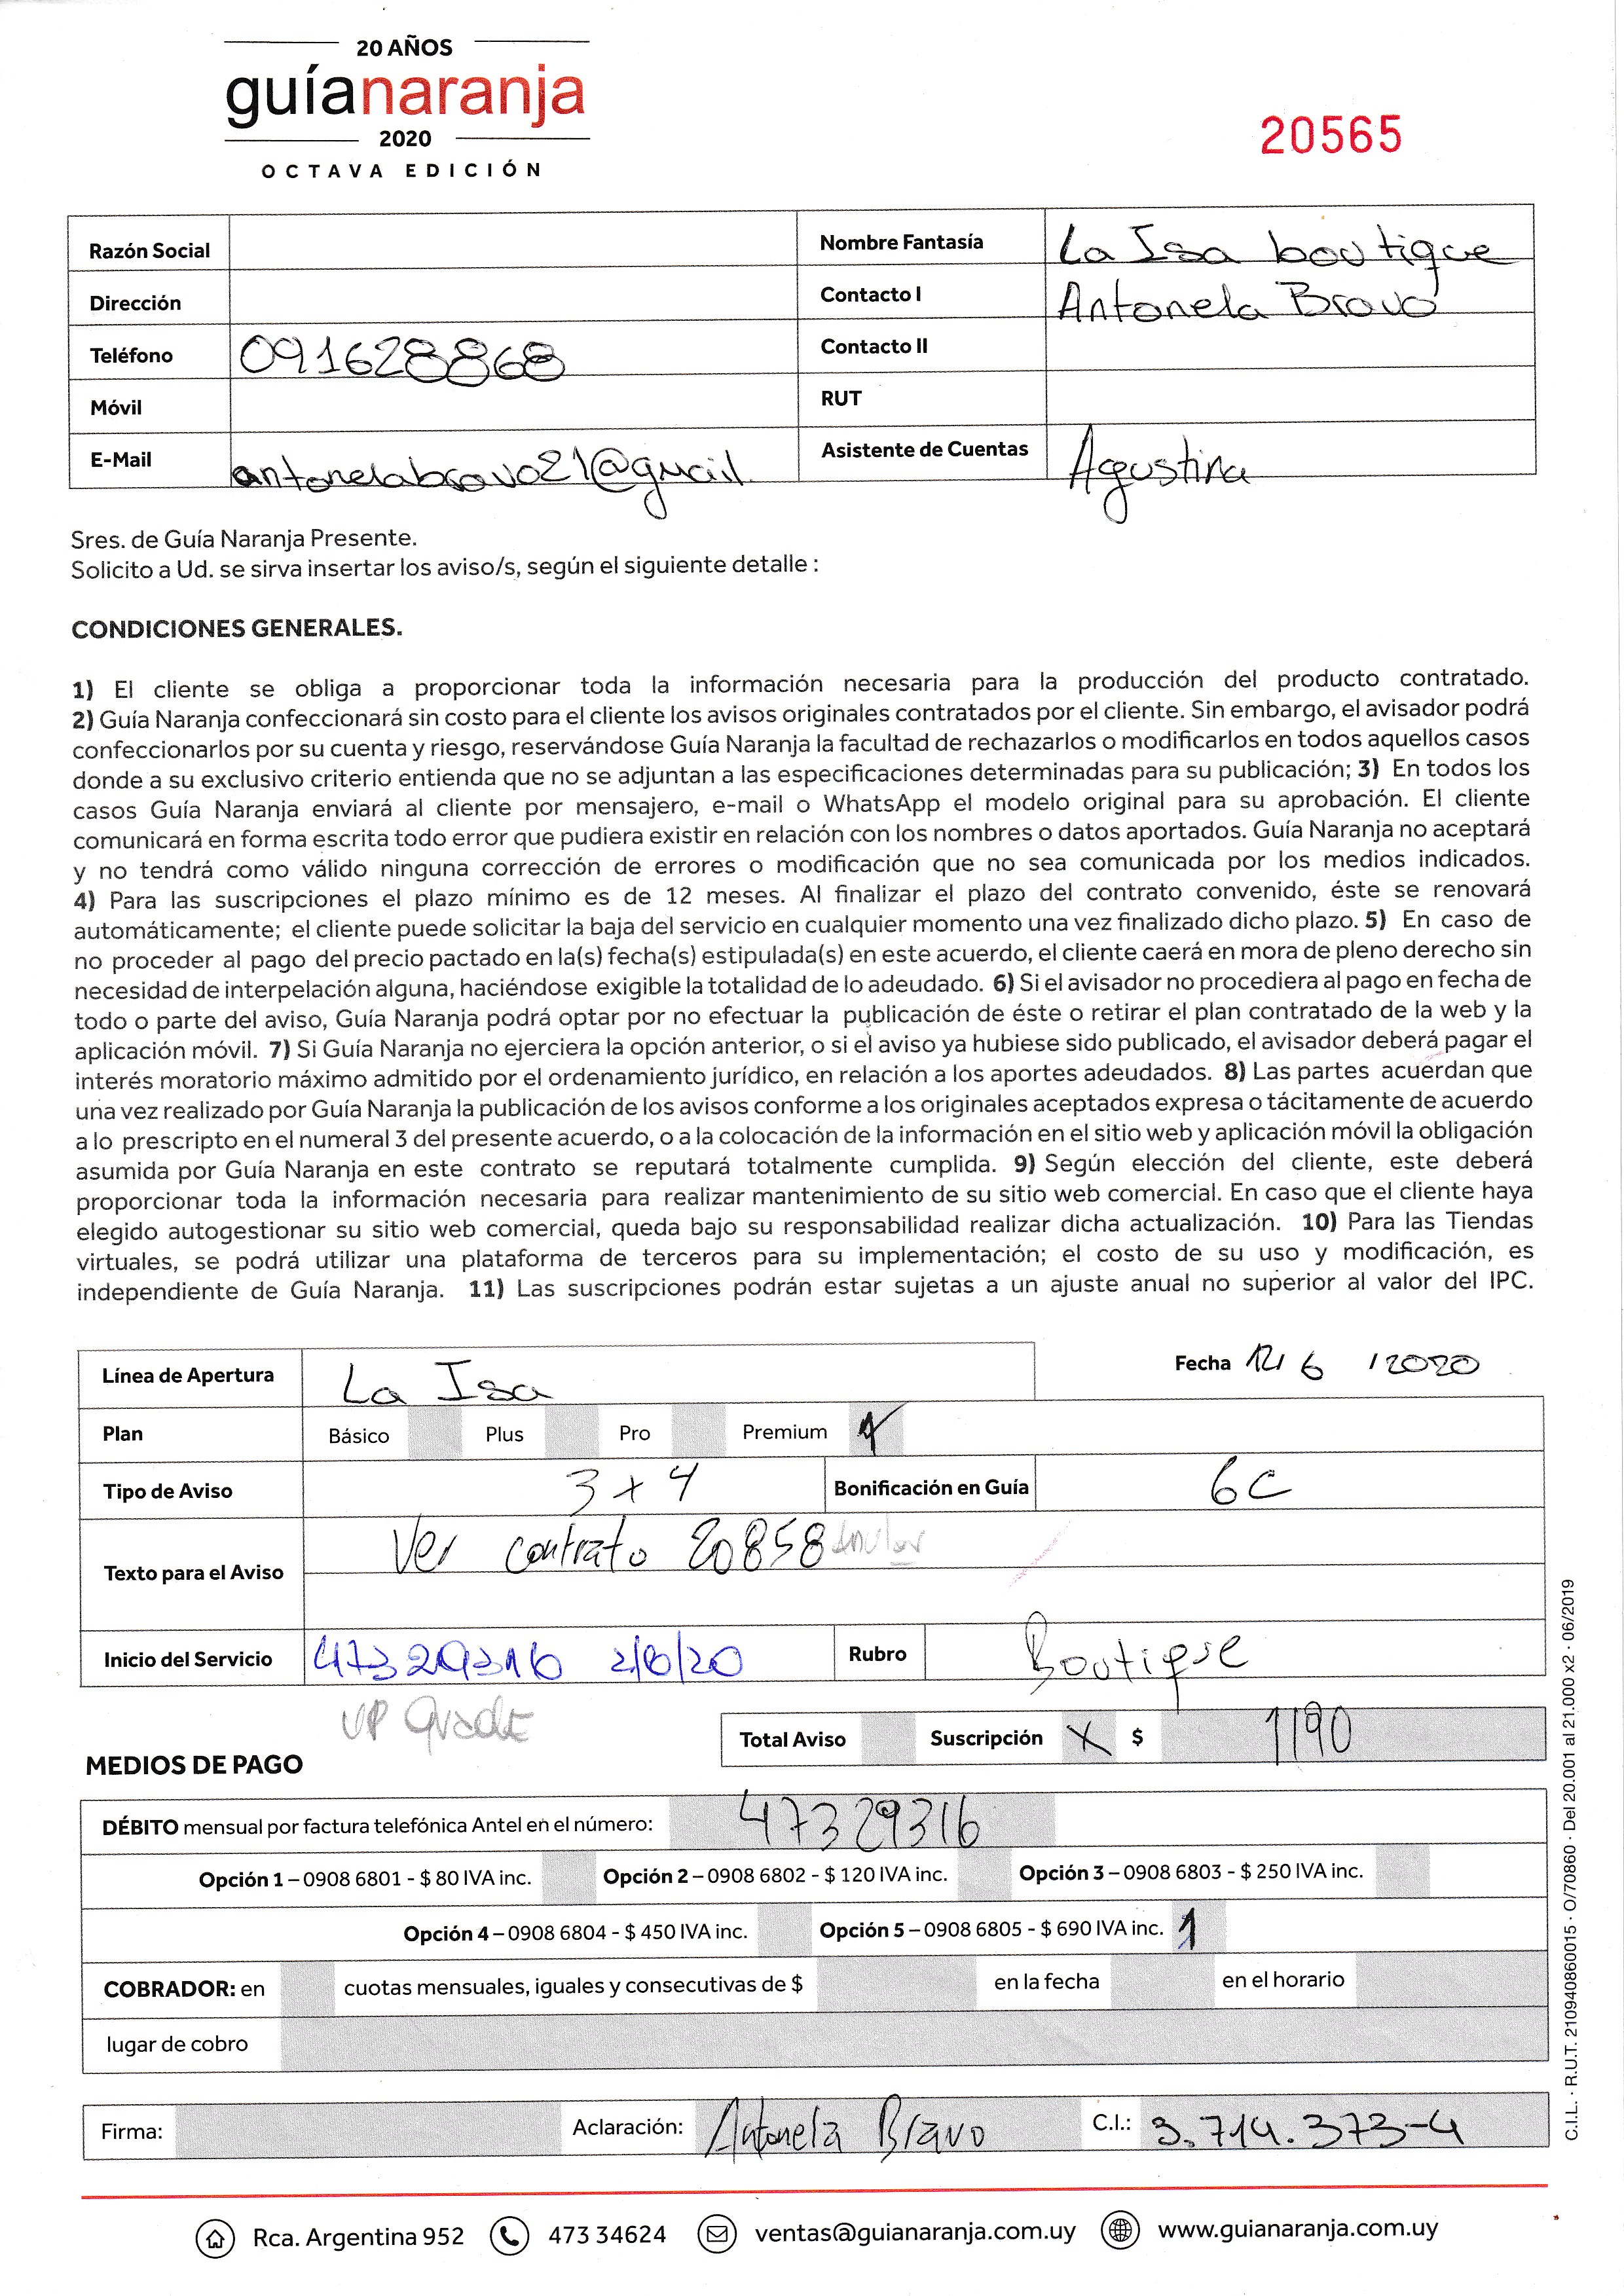 20 AÑOS
guíanaranja
2020
OCTAVA EDICIÓN
20565
Razón Social
Nombre Fantasía La Isa boutique
Dirección
Contacto I Antonela Bravo
Teléfono 091628868
Contacto II
Móvil
RUT
E-Mail antonelabravo21@gmail.
Asistente de Cuentas Agustina
Sres. de Guía Naranja Presente.
Solicito a Ud. se sirva insertar los aviso/s, según el siguiente detalle :
CONDICIONES GENERALES.
1) El cliente se obliga a proporcionar toda la información necesaria para la producción del producto contratado.
2) Guía Naranja confeccionará sin costo para el cliente los avisos originales contratados por el cliente. Sin embargo, el avisador podrá
confeccionarlos por su cuenta y riesgo, reservándose Guía Naranja la facultad de rechazarlos o modificarlos en todos aquellos casos
donde a su exclusivo criterio entienda que no se adjuntan a las especificaciones determinadas para su publicación; 3) En todos los
casos Guía Naranja enviará al cliente por mensajero, e-mail o WhatsApp el modelo original para su aprobación. El cliente
comunicará en forma escrita todo error que pudiera existir en relación con los nombres o datos aportados. Guía Naranja no aceptará
y no tendrá como válido ninguna corrección de errores o modificación que no sea comunicada por los medios indicados.
4) Para las suscripciones el plazo mínimo es de 12 meses. Al finalizar el plazo del contrato convenido, éste se renovará
automáticamente; el cliente puede solicitar la baja del servicio en cualquier momento una vez finalizado dicho plazo. 5) En caso de
no proceder al pago del precio pactado en la(s) fecha(s) estipulada(s) en este acuerdo, el cliente caerá en mora de pleno derecho sin
necesidad de interpelación alguna, haciéndose exigible la totalidad de lo adeudado. 6) Si el avisador no procediera al pago en fecha de
todo o parte del aviso, Guía Naranja podrá optar por no efectuar la publicación de éste o retirar el plan contratado de la web y la
aplicación móvil. 7) Si Guía Naranja no ejerciera la opción anterior, o si el aviso ya hubiese sido publicado, el avisador deberá pagar el
interés moratorio máximo admitido por el ordenamiento jurídico, en relación a los aportes adeudados. 8) Las partes acuerdan que
una vez realizado por Guía Naranja la publicación de los avisos conforme a los originales aceptados expresa o tácitamente de acuerdo
a lo prescripto en el numeral 3 del presente acuerdo, o a la colocación de la información en el sitio web y aplicación móvil la obligación
asumida por Guía Naranja en este contrato se reputará totalmente cumplida. 9) Según elección del cliente, este deberá
proporcionar toda la información necesaria para realizar mantenimiento de su sitio web comercial. En caso que el cliente haya
elegido autogestionar su sitio web comercial, queda bajo su responsabilidad realizar dicha actualización. 10) Para las Tiendas
virtuales, se podrá utilizar una plataforma de terceros para su implementación; el costo de su uso y modificación, es
independiente de Guía Naranja. 11) Las suscripciones podrán estar sujetas a un ajuste anual no superior al valor del IPC.
Línea de Apertura La Isa
Fecha 12/ 6 / 2020
Plan Básico Plus Pro Premium
Tipo de Aviso 3 x 4
Bonificación en Guía 6C
Texto para el Aviso Ver contrato 20858 Anular
Inicio del Servicio 47329316 2/6/20
Rubro Boutique
UP Grade
Total Aviso Suscripción X $ 1190
MEDIOS DE PAGO
DÉBITO mensual por factura telefónica Antel en el número: 47329316
Opción 1 – 0908 6801 - $ 80 IVA inc. Opción 2 – 0908 6802 - $ 120 IVA inc. Opción 3 – 0908 6803 - $ 250 IVA inc.
Opción 4 – 0908 6804 - $ 450 IVA inc. Opción 5 – 0908 6805 - $ 690 IVA inc. 1
COBRADOR: en cuotas mensuales, iguales y consecutivas de $ en la fecha en el horario
lugar de cobro
Firma: Aclaración: Antonela Bravo C.I.: 3.714.373-4
Rca. Argentina 952 473 34624 ventas@guianaranja.com.uy www.guianaranja.com.uy
C.I.L. · R.U.T. 210940860015 · O/70860 · Del 20.001 al 21.000 x2 · 06/2019